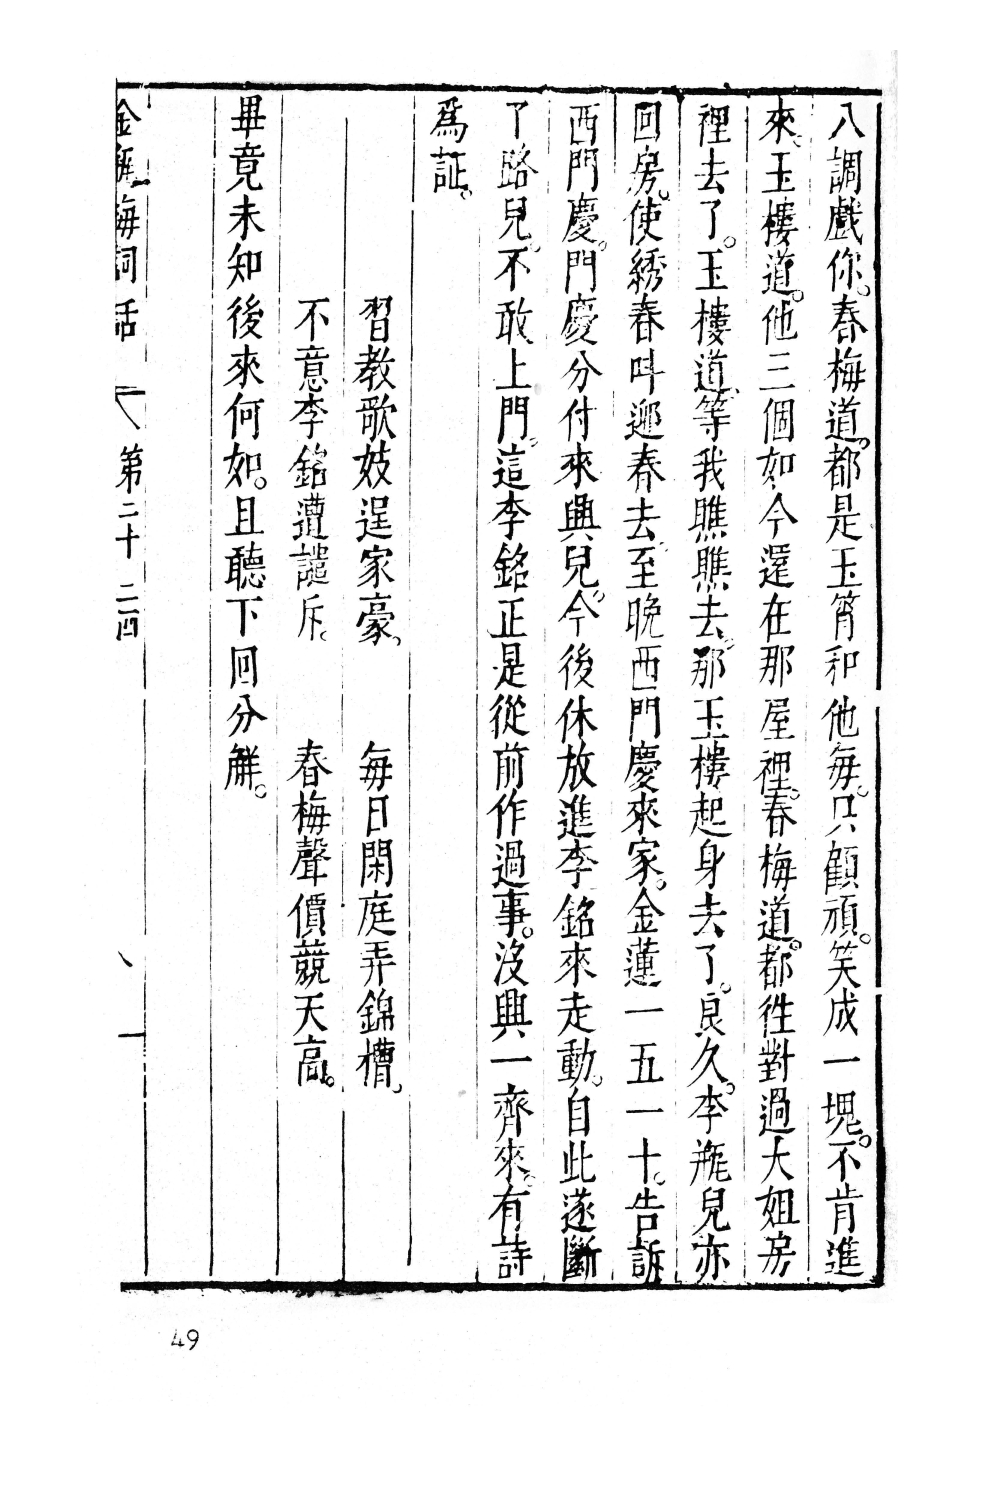 八調戲你。春梅道。都是玉筲和他每。只顧頑。笑成一塊。不肯進
來。玉樓道。他三個如今還在那屋裡。春梅道。都徃對過大姐房
裡去了。玉樓道。等我瞧瞧去。那玉樓起身去了。良久。李瓶兒亦
回房。使綉春叫迎春去。至晚西門慶來家。金蓮一五一十。告訴
西門慶。門慶分付來興兒。今後休放進李銘來走動。自此遂斷
了路兒。不敢上門。這李銘正是從前作過事。沒興一齊來。有詩
爲証。
習教歌妓逞家豪。 每日閑庭弄錦槽。
不意李銘遭譴斥。 春梅聲價競天高。
畢竟未知後來何如。且聽下回分觧。
金瓶梅詞話 第二十二 四
49